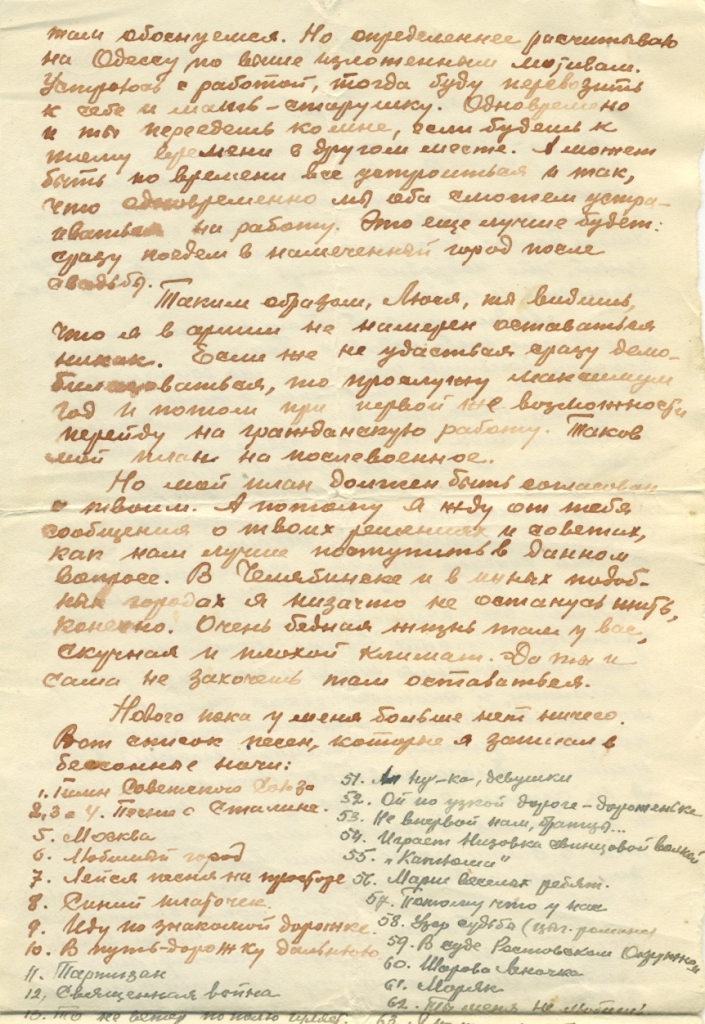 там обоснуемся. Но определеннее расчитываю
на Одессу по выше изложенным мотивам.
Устроюсь с работой, тогда буду перевозить
к себе и мать-старушку. Одновремено
и ты переедешь ко мне, если будешь к
тому времени в другом месте. А может
быть по времени все устроиться и так,
что одновременно мы оба сможем устра-
иваться на работу. Это еще лучше будет:
сразу поедем в намеченный город после
свадьбы.
Таким образом, Люся, ты видишь,
что я в армии не намерен оставаться
никак. Если же не удасться сразу демо-
билизоваться, то прослужу максимум
год и потом при первой же возможности
перейду на гражданскую работу. Таков
мой план на послевоенное.
Но мой план должен быть согласован
с твоим. А потому я жду от тебя
сообщения о твоих решениях и советах,
как нам лучше поступить в данном
вопросе. В Челябинске и в иных подоб-
ных городах я низачто не останусь жить,
конечно. Очень бедная жизнь там у вас,
скучная и плохой климат. Да ты и
сама не захочешь там оставаться.
Нового пока у меня больше нет ничего.
Вот список песен, которые я записал в
бессонные ночи:
1. Гимн Советского Союза
2, 3 и 4. Песни о Сталине.
5. Москва
6. Любимый город
7. Лейся песня на просторе
8. Синий платочек.
9. Иду по знакомой дорожке.
10. В путь-дорожку дальнюю
11. Партизан
12. Священная война
13. То не ветер по полю гуляет.
51. А ну-ка, девушки
52. Ой по узкой дороге-дороженьке
53. Не впервой нам, братцы...
54. Играет Низовка свинцовой волной
55. „Катюша"
56. Марш веселых ребят.
57. Потому что у нас
58. Узор судьбы (цыг. романс)
59. В суде Ростовском Окружном
60. Шарова Леночка
61. Моряк
62. Ты меня не любишь!
63.